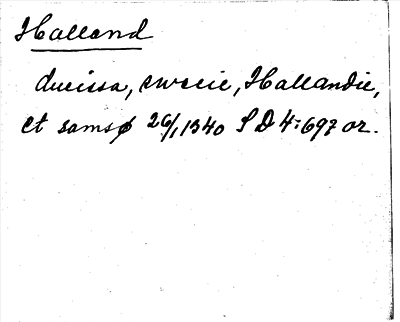 Halland
ducissa, swecie, Hallandie,
et samsø 26/1 1340 SD 4:697 or.